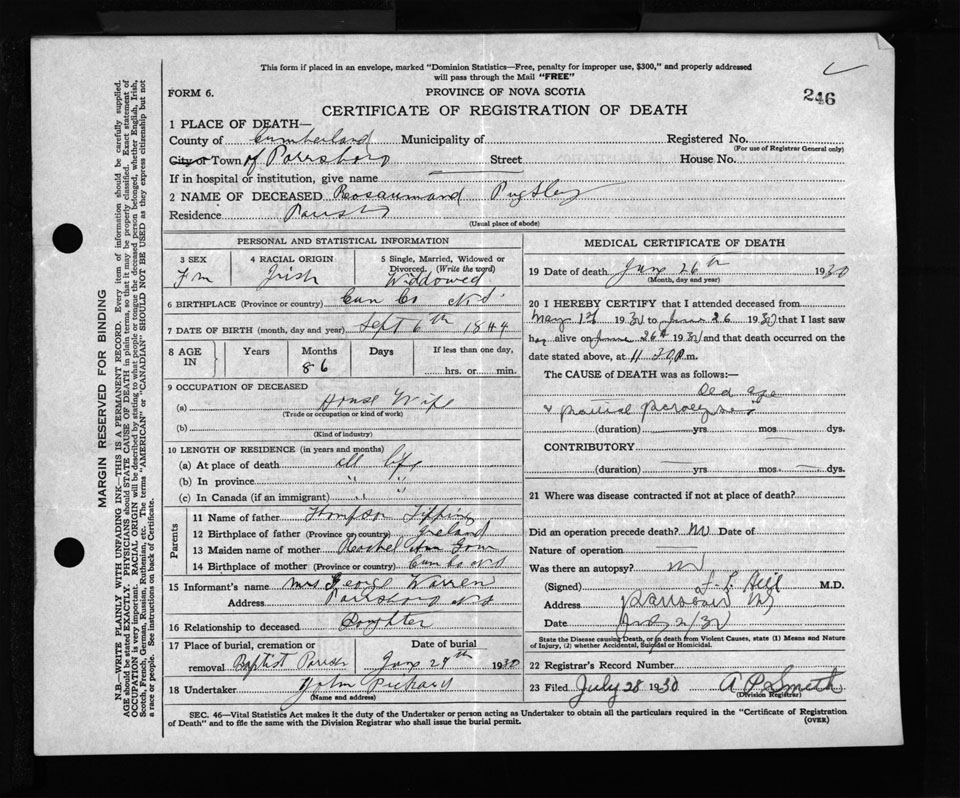 This form if placed in an envelope, marked "Dominion Statistics—Free, penalty for improper use, $300," and properly addressed
will pass through the Mail "FREE"
FORM 6.
PROVINCE OF NOVA SCOTIA
246
CERTIFICATE OF REGISTRATION OF DEATH
1 PLACE OF DEATH—
County of Cumberland Municipality of Registered No.
(For use of Registrar General only)
City or Town of Parrsboro Street House No.
If in hospital or institution, give name
2 NAME OF DECEASED Rosaumand Pugsley
Residence Parrsboro
(Usual place of abode)
PERSONAL AND STATISTICAL INFORMATION
3 SEX 4 RACIAL ORIGIN 5 Single, Married, Widowed or
Divorced. (Write the word)
Fm Irish Widdowed
6 BIRTHPLACE (Province or country) Cum Co N.S.
7 DATE OF BIRTH (month, day and year) Sept 6th 1844
8 AGE IN Years Months Days If less than one day,
86
hrs. or min.
9 OCCUPATION OF DECEASED
(a) House Wife
(Trade or occupation or kind of work)
(b)
(Kind of industry)
10 LENGTH OF RESIDENCE (in years and months)
(a) At place of death all life
(b) In province " "
(c) In Canada (if an immigrant) " "
Parents
11 Name of father Thompson Tipping
12 Birthplace of father (Province or country) Ireland
13 Maiden name of mother Rachel Ann
14 Birthplace of mother (Province or country) Cum Co N.S
15 Informant's name Mrs George Warren
Address Parrsboro N.S
16 Relationship to deceased Doughter
17 Place of burial, cremation or Date of burial
removal Baptist June 29th 1930
18 Undertaker John Pickard
(Name and address)
MEDICAL CERTIFICATE OF DEATH
19 Date of death June 26th 1930
(Month, day and year)
20 I HEREBY CERTIFY that I attended deceased from
May 1st 1930 to June 26 1930 that I last saw
her alive on June 26th 1930 and that death occurred on the
date stated above, at 11.30 P.m.
The CAUSE of DEATH was as follows:—
Old age
(duration) yrs mos dys.
CONTRIBUTORY
(duration) yrs. mos. dys.
21 Where was disease contracted if not at place of death?
Did an operation precede death? No Date of
Nature of operation
Was there an autopsy? No
(Signed) Hill M.D.
Address Parrsboro NS
Date July 2/30
State the Disease causing Death, or in death from Violent Causes, state (1) Means and Nature
of Injury, (2) whether Accidental, Suicidal or Homicidal.
22 Registrar's Record Number
23 Filed July 28 1930 A P. Smith
(Division Registrar)
SEC. 46—Vital Statistics Act makes it the duty of the Undertaker or person acting as Undertaker to obtain all the particulars required in the "Certificate of Registration
of Death" and to file the same with the Division Registrar who shall issue the burial permit.
(OVER)
MARGIN RESERVED FOR BINDING
N.B.—WRITE PLAINLY WITH UNFADING INK—THIS IS A PERMANENT RECORD. Every item of information should be carefully supplied.
AGE should be stated EXACTLY. PHYSICIANS should STATE CAUSE OF DEATH in plain terms, so that it may be properly classified. Exact statement of
OCCUPATION is very important. RACIAL ORIGIN will be described by stating to what people or tongue the deceased person belonged, whether English, Irish,
Scotch, French, German, Russian, Ruthenian, etc. The terms "AMERICAN" or "CANADIAN" SHOULD NOT BE USED as they express citizenship but not
a race or people. See instructions on back of Certificate.